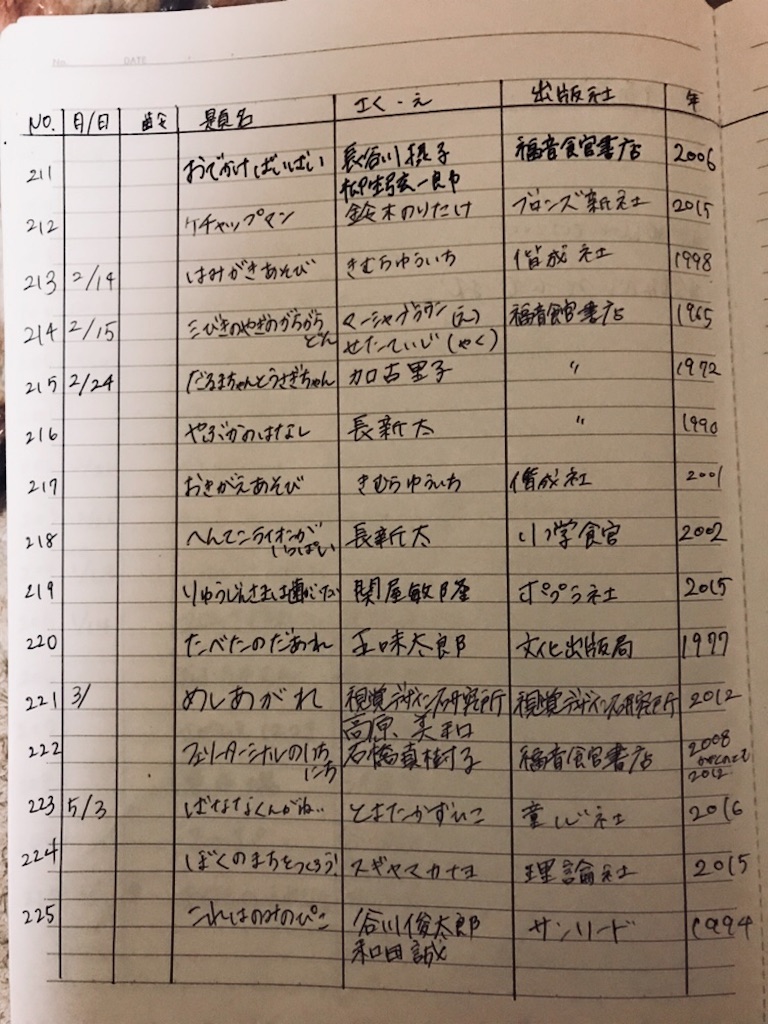 No. DATE
NO. 月/日 齢 題名 さく・え 出版社 年
211 おでかけばいばい 長谷川摂子 福音館書店 2006
柳生弦一郎
212 ケチャップマン 鈴木のりたけ ブロンズ新社 2015
213 2/14 はみがきあそび きむらゆういち 偕成社 1998
214 2/15 三びきのやぎのがらがら マーシャブラウン(え) 福音館書店 1965
どん せたていじ(やく)
215 2/24 だるまちゃんとうさぎちゃん 加古里子 〃 1972
216 やぶかのはなし 長新太 〃 1990
217 おきがえあそび きむらゆういち 偕成社 2001
218 へんてこライオンが 長新太 小学館 2002
いっぱい
219 りゅうじんさまは歯がいたい 関屋敏隆 ポプラ社 2015
220 たべたのだあれ 五味太郎 文化出版局 1977
221 3/ めしあがれ 視覚デザイン研究所 視覚デザイン研究所 2012
高原美和
222 フェリーターミナルのいち 石橋真樹子 福音館書店 2008
にち 2012
223 5/3 ばななくんがね‥ とよたかずひこ 童心社 2016
224 ぼくのまちをつくろう! スギヤマカナヨ 理論社 2015
225 これはのみのぴこ 谷川俊太郎 サンリード 1994
和田誠